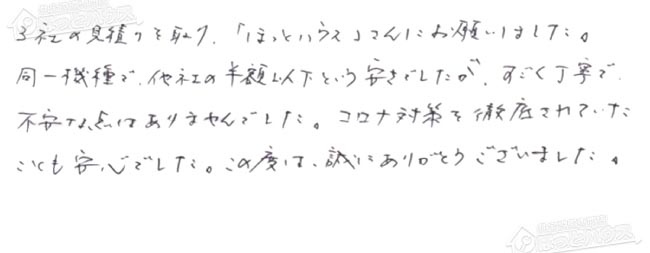 3社の見積りを取り、「ほっとハウス」さんにお願いしました。
同一機種で、他社の半額以下という安さでしたが、すごく丁寧で、
不安な点はありませんでした。コロナ対策を徹底されていた
ことも安心でした。この度は、誠にありがとうございました。
ほっとハウス
ほっとハウス